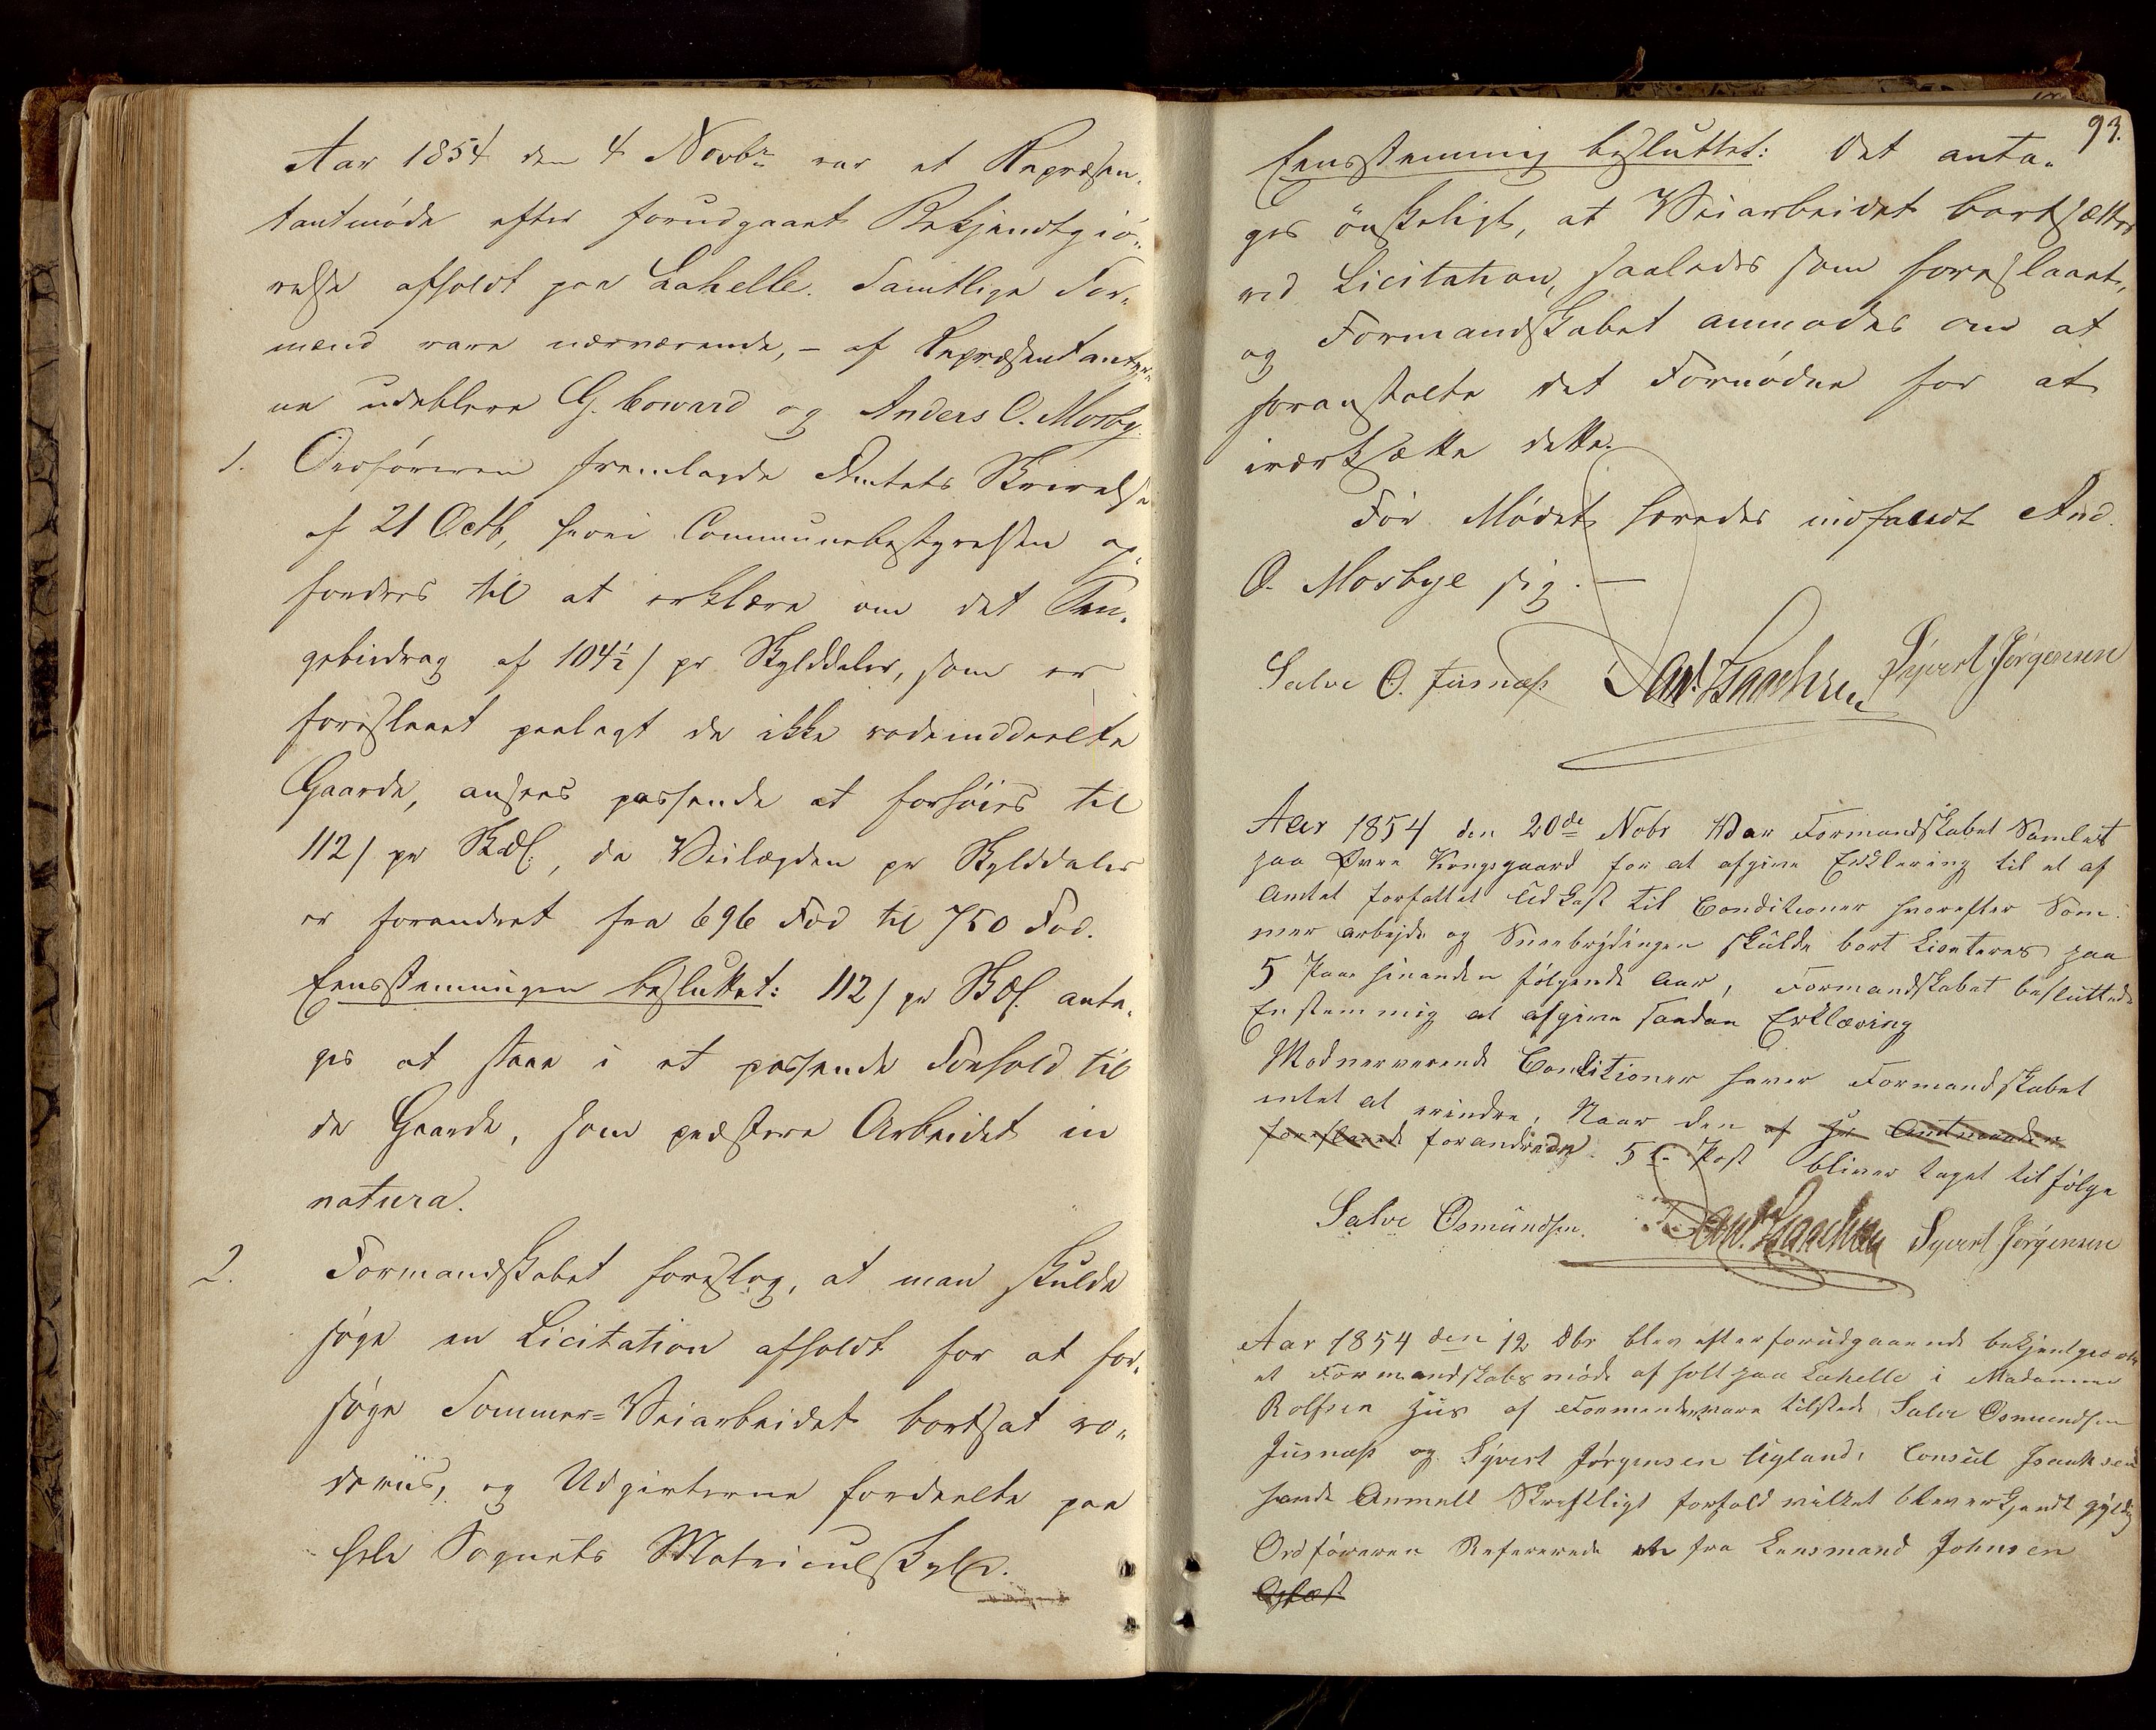 Aar 1854 den 4 Novbr var et Repræsen-
tantmøde efter forudgaaet Bekjendtgiö-
relse afholdt paa Lahelle. Samtlige For-
mænd vare nærværende, – af Repræsentanter-
ne udebleve G. Coward og Anders O. Mosby.
1. Ordføreren fremlagde Amtets Skrivelse
af 21 Octb, hvori Communebestyrelsen op-
fordres til at erklære om det Pen-
gebidrag af 104½ / pr Skylddaler, som er
foreslaaet paalagt de ikke rodeinddeelte
Gaarde, ansees passende at forhöies til
112 / pr Skdl:, da Veilægden pr Skylddaler
er forandret fra 696 Fod til 750 Fod.
Eensstemmigen besluttet: 112 / pr Skdl. anta-
ges at staae i et passende Forhold til
de Gaarde, som præstere Arbeidet in
natura.
2. Formandskabet foreslog, at man skulde
søge en Licitation afholdt for at for-
søge Sommer-Veiarbeidet bortsat ro-
deviis, og Udgivterne fordeelte paa
hele Sognets Matriculskyld.
93.
Eensstemmig besluttet: Det anta-
ges önskeligt, at Veiarbeidet bortsættes
ved Licitation, saaledes som foreslaaet,
og Formandskabet anmodes om at
foranstalte det Fornødne for at
iværksætte dette.
Før Mødet hævedes indfandt And.
O. Mosbye sig. –
Salve O. Jusnæss Dan. Isaachsen Syvert Jørgensen
Aar 1854 den 20de Nobr Var Formandskabet Samlet
paa Øvre Kongsgaard for at afgive Erklering til et af
Amtet forfattet Udkast til Conditioner hvorefter Som-
mer arbejde og Sneebrydingen skulde bort Liciteres paa
5 Paa hinanden følgende Aar, Formandskabet besluttede
Enstemmig at afgive saadan Erklæring
Mod nerverende Conditioner haver Formandskabet
intet at erindre, Naar den af Hr Amtmanden
foreslaaede forandrede 5te Post bliver taget tilfølge
Salve Osmundsen. Dan. Isaachsen Syvert Jørgensen
Aar 1854 den 12 Dbr blev efter forudgaaende bekjentgiørelse
et Formandskabsmöde af holt paa Lahelle i Madamme
Rolfsen Hüs af Formendene vare tilstede Salve Osmundsen
Jusnæss og Syvert Jørgensen Ugland, Consul Isaachsen
havde Anmelt Skriftligt forfald vilket blev erkjendt gyldig
Ordføreren Refererede en fra Lensmand Johnsen
Oplæst